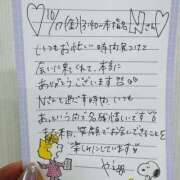 10/17(金)13:40〜本指名
Nさん♡
いつもお忙しい時は見つけて
会いに来てくれて、本当に
ありがとうございます
Nさんと過ごす時間、いつ
も あっという間で名残惜しいです
また来月、笑顔でお会いできること
楽しみにしています♡